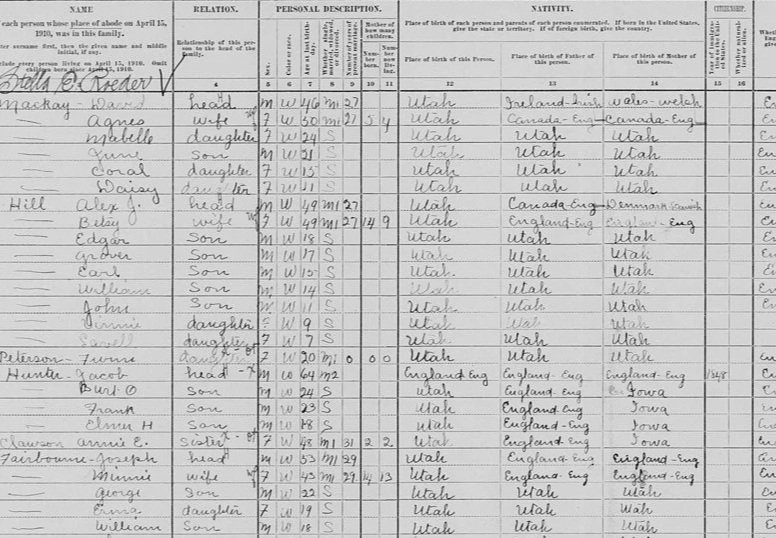 NAME RELATION. PERSONAL DESCRIPTION. NATIVITY. CITIZENSHIP.
each person whose place of abode on April 15, 1910, was in this family.
Enter surname first, then the given name and middle initial, if any.
Include every person living on April 15, 1910. Omit children born since April 15, 1910.
Relationship of this person to the head of the family.
Sex.
Color or race.
Age at last birthday.
Whether single, married, widowed, or divorced.
Number of years of present marriage.
Mother of how many children.
Number born.
Number now living.
Place of birth of each person and parents of each person enumerated. If born in the United States, give the state or territory. If of foreign birth, give the country.
Place of birth of this Person.
Place of birth of Father of this person.
Place of birth of Mother of this person.
Year of immigration to the United States.
Whether naturalized or alien.
4 5 6 7 8 9 10 11 12 13 14 15 16
Stella E. Roeder
Mackay David head m W 46 m1 27 Utah Ireland-Irish Wales-Welsh
Agnes wife F W 50 m1 27 5 4 Utah Canada-Eng Canada-Eng
Mabelle daughter F W 24 S Utah Utah Utah
Son m W 21 S Utah Utah Utah
Coral daughter F W 15 S Utah Utah Utah
Daisy daughter F W 11 S Utah Utah Utah
Hill Alex J. head m W 49 m1 27 Utah Canada-Eng Denmark-
Betsy wife F W 49 m1 27 14 9 Utah England-Eng England-Eng
Edgar Son m W 18 S Utah Utah Utah
Grover Son m W 17 S Utah Utah Utah
Earl Son m W 15 S Utah Utah Utah
William Son m W 14 S Utah Utah Utah
John Son m W 11 S Utah Utah Utah
daughter F W 9 S Utah Utah Utah
daughter F W 7 S Utah Utah Utah
Peterson daughter F W 20 m1 0 0 0 Utah Utah Utah
Hunter Jacob head m W 64 m2 England Eng England-Eng England-Eng 1848
Burt O Son m W 24 S Utah England-Eng Iowa
Frank Son m W 23 S Utah England-Eng Iowa
Elmer H Son m W 18 S Utah England-Eng Iowa
Clawson Annie E. Sister F W 48 m1 31 2 2 Utah England-Eng Iowa
Fairbourne Joseph head m W 53 m1 29 Utah England-Eng England-Eng
Minnie wife F W 43 m1 29 14 13 Utah England-Eng England-Eng
George Son m W 22 S Utah Utah Utah
Erma daughter F W 19 S Utah Utah Utah
William Son m W 18 S Utah Utah Utah